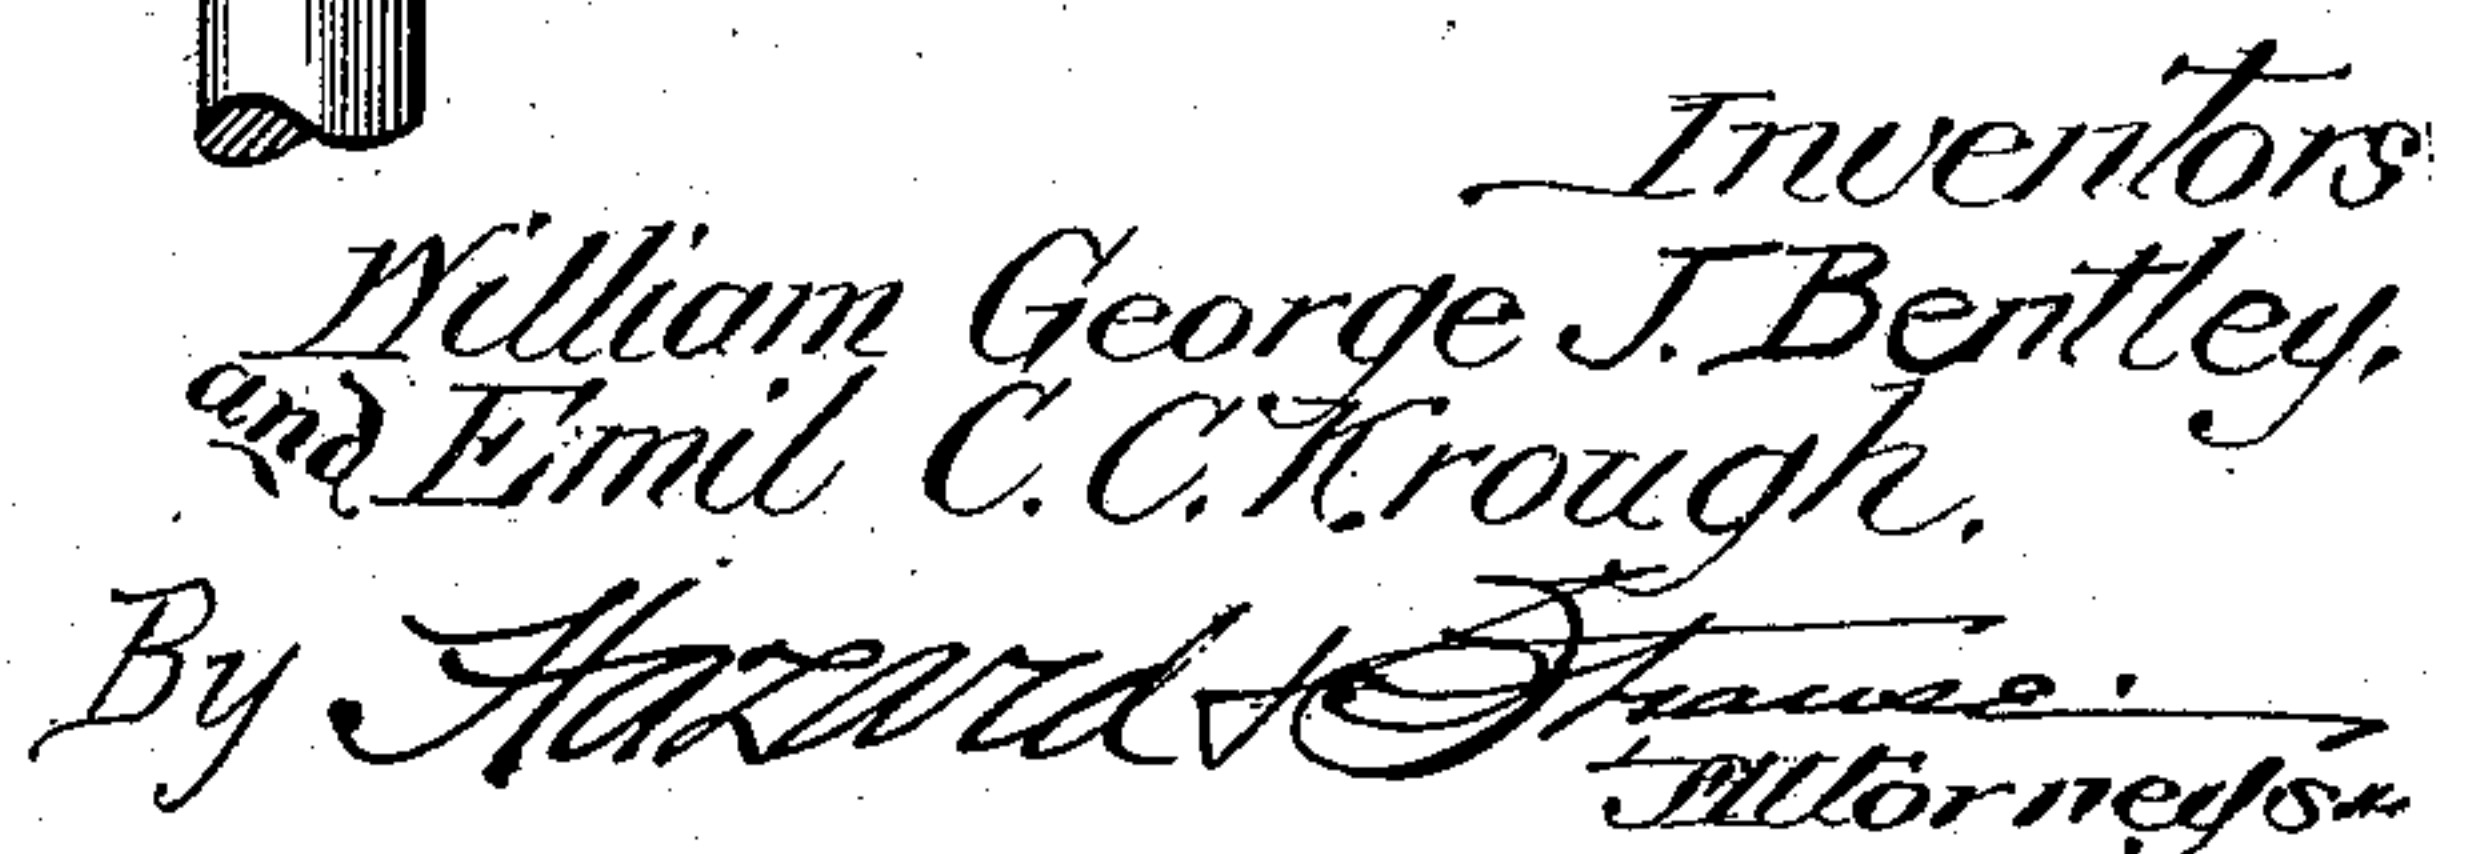 Inventors
William George J. Bentley,
and Emil C. C. Krough.
By Hazard &
Attorneys